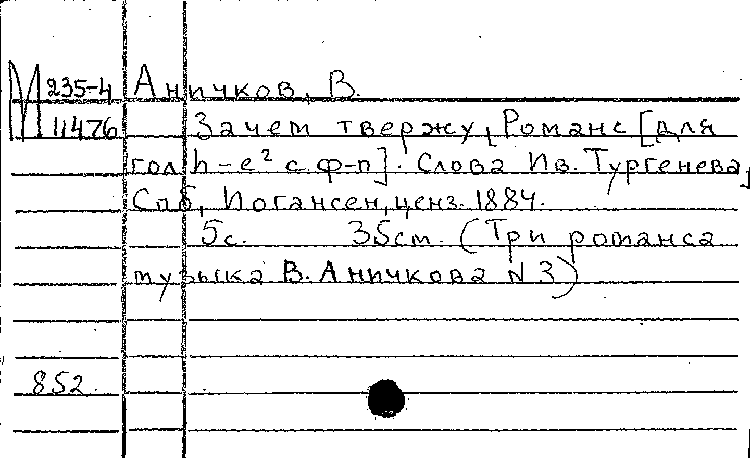 М 235-4 Аничков, В.
11476 Зачем твержу, Романс [для
гол h-e² с ф-п]. Слова Ив. Тургенева,
Спб, Иогансен, ценз. 1884.
5с. 35см. (Три романса
музыка В. Аничкова N 3)
852.